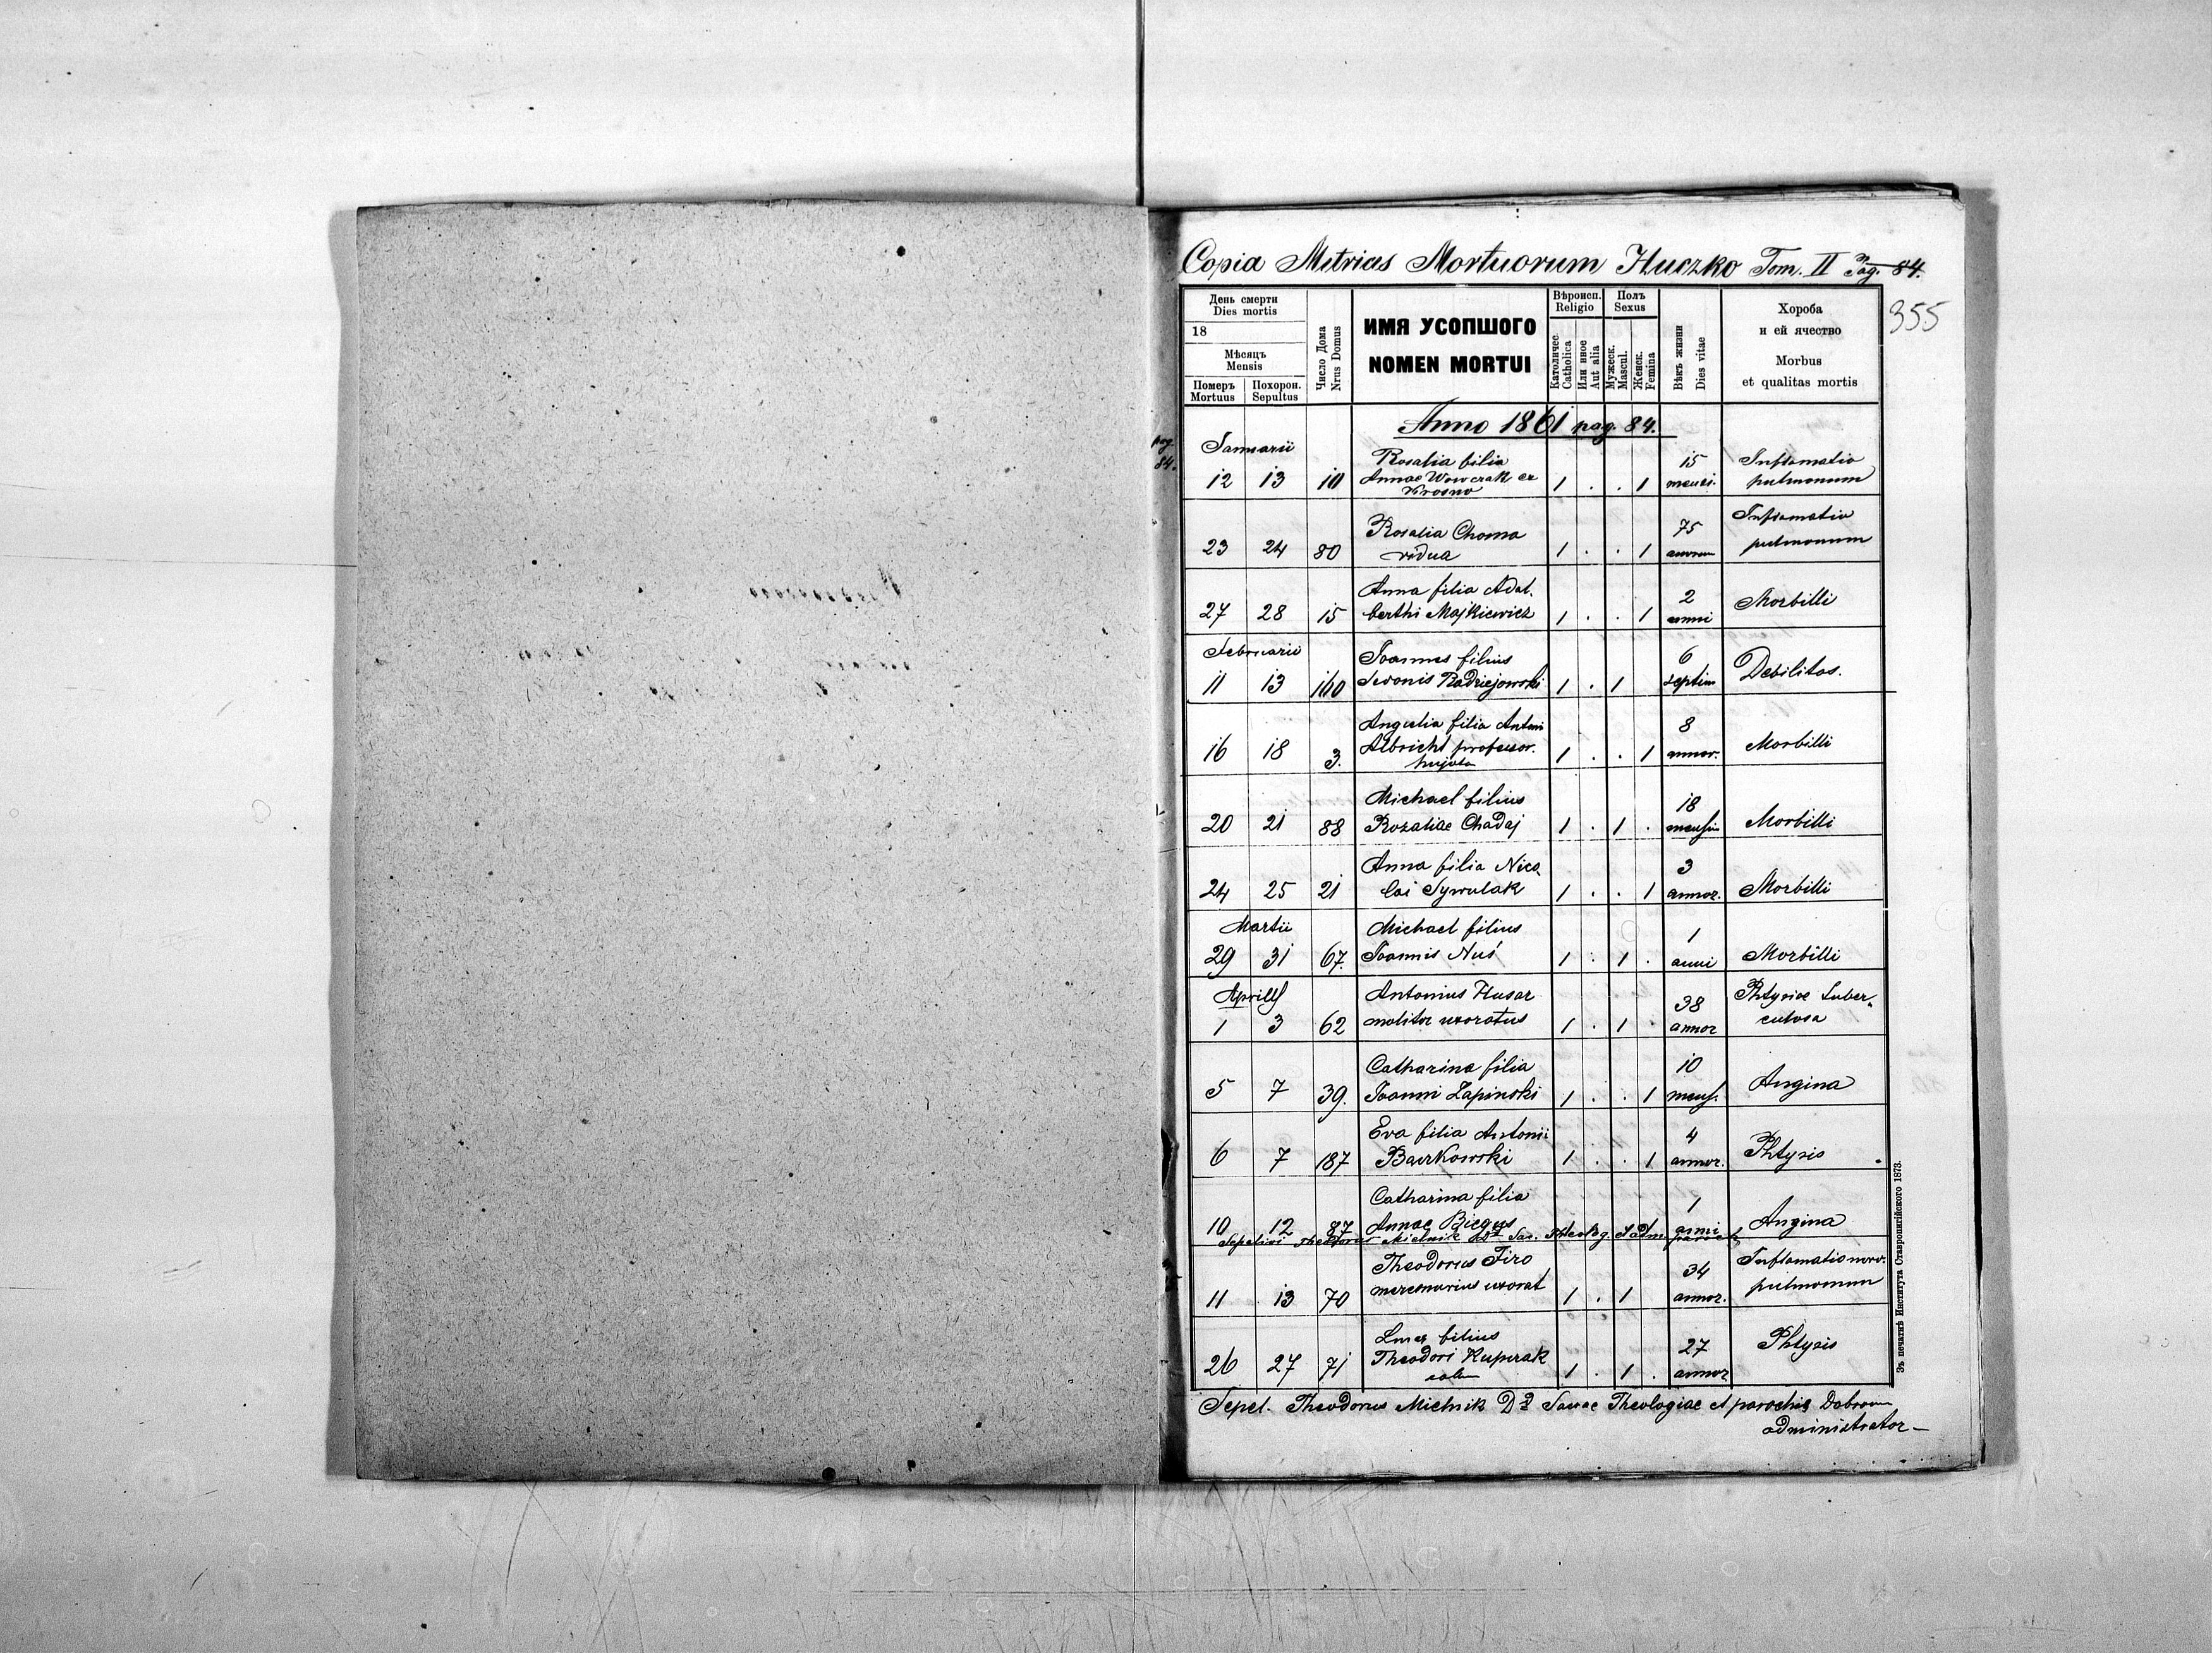 Copia Metrices Mortuorum Huczko Tom. II Pag. 84.
355
День смерти
Dies mortis
18
Мѣсяцъ
Mensis
Померъ
Mortuus
Похорон.
Sepultus
Число Дома
Nrus Domus
ИМЯ УСОПШОГО
NOMEN MORTUI
Вѣроисп.
Religio
Католичес.
Catholica
Или иное
Aut alia
Полъ
Sexus
Мужеск.
Mascul.
Женск.
Femina
Вѣкъ жизни
Dies vitae
Хороба
и ей ячество
Morbus
et qualitas mortis
Anno 1861 pag. 84.
pag.
84.
Januarii
12 13 10 Rosalia filia Annae Wowczak ex Krosno 1 . . 1 15 mensi. Inflamatio pulmonum
23 24 80 Rosalia Choma vidua 1 . . 1 75 Inflamatio pulmonum
27 28 15 Anna filia Adal. berthi Majkiewicz 1 . . 1 2 anni Morbilli
Februarii
11 13 160 Joannes filius Radziejowski 1 . 1 6 septim Debilitas.
16 18 3. Angelia filia Antoni Albricht professor. 1 . . 1 8 annor. Morbilli
20 21 88 Michael filius Rozaliae Chadaj 1 . 1 . 18 mensium Morbilli
24 25 21 Anna filia Nico lai Sywulak 1 . . 1 3 annor. Morbilli
Martii
29 31 67. Michael filius Joannis Nuś 1 . 1 . 1 anni Morbilli
Aprilis
1 3 62 Antonius Husar molitor uxoratus 1 . 1 . 38 annor Phtysise tuber„ culosa
5 7 39. Catharina filia Joanni Lapinski 1 . . 1 10 mens. Angina
6 7 187 Eva filia Antonii Baerkowski 1 . . 1 4 annor. Phtysis
10 12 87 Catharina filia Annae Biegus 1 anni Angina
Sepelivi Theodorus Mielnik Dr Sac. Theolog. Adm.
11 13 70 Theodorus Firo mercenarius uxorat 1 . 1 34 annor. Inflamatio pulmonum
26 27 71 filius Theodori Kuperak 1 . 1 . 27 annor Phtysis
Sepel. Theodorus Mielnik Dr Sacrae Theologiae et parochie Dobroau
administrator —
Зъ печатнѣ Института Ставропигійского 1873.